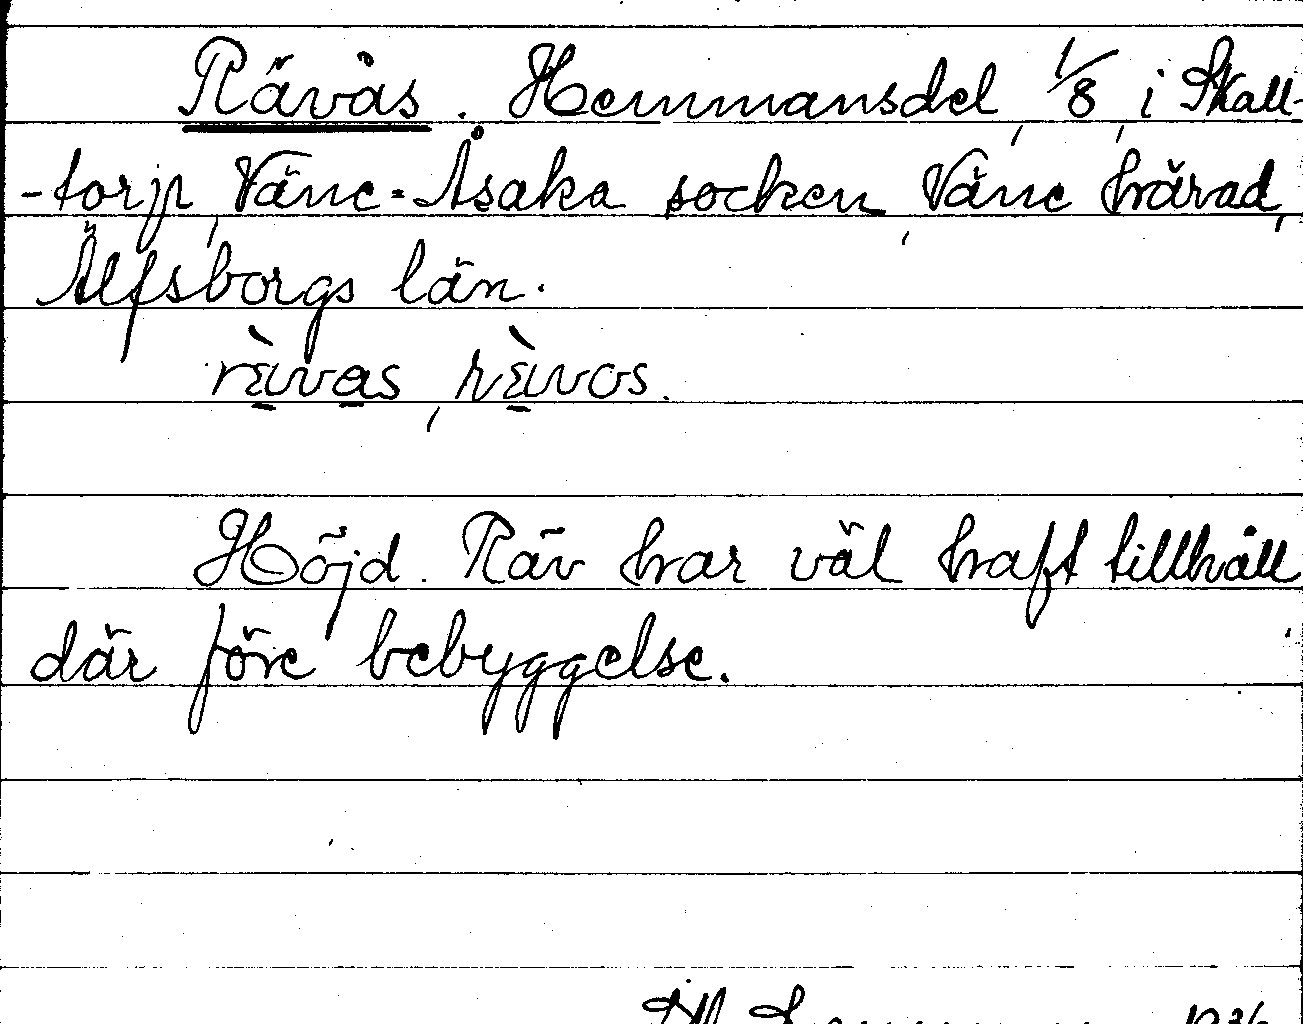 Rävås. Hemmansdel, 1/8, i Skall-
-torp, Väne-Åsaka socken, Väne härad,
Älfsborgs län.
Höjd. Räv har väl haft tillhåll
där före bebyggelse.